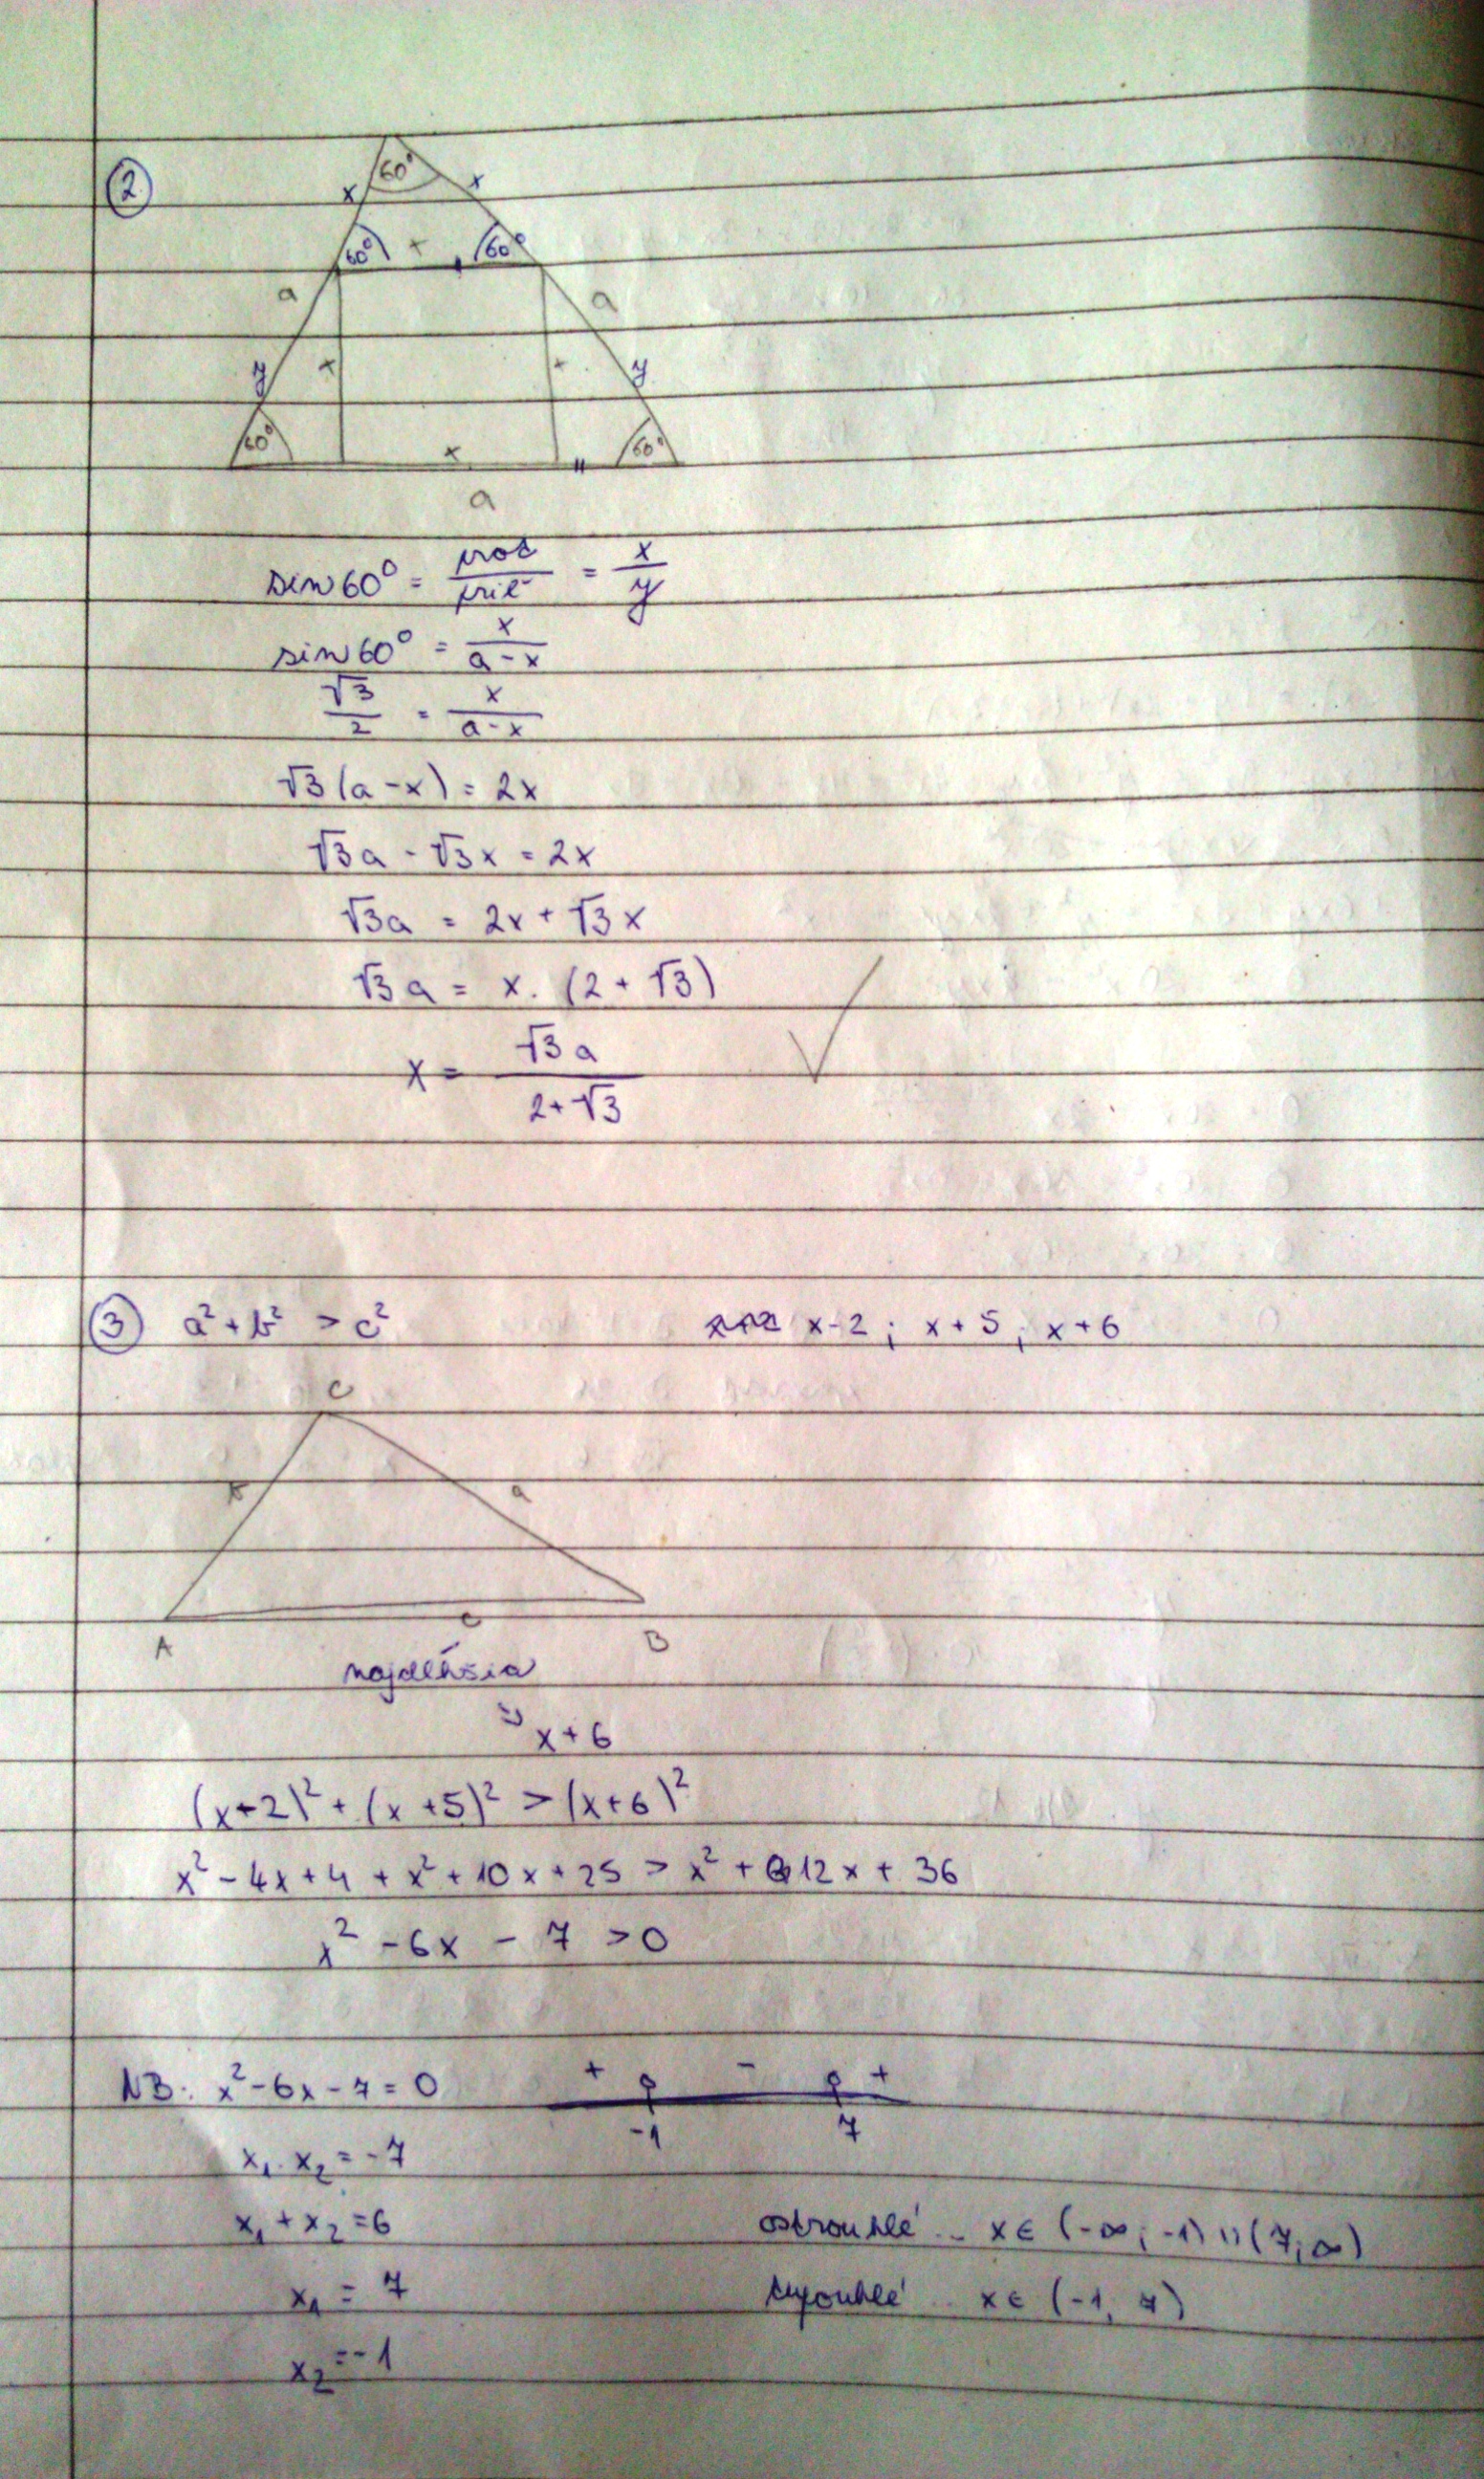 2
60°
x x
60° x 60°
a a
y x x y
60° x 60°
a
sin 60° = prot / pril = x / y
sin 60° = x / a-x
√3 / 2 = x / a-x
√3 (a-x) = 2x
√3a - √3x = 2x
√3a = 2x + √3x
√3a = x. (2+√3)
x = √3a / 2+√3
3 a² + b² > c² x-2 ; x+5 ; x+6
C
b a
c
A B
najdlhšia
x+6
(x-2)² + (x+5)² > (x+6)²
x² - 4x + 4 + x² + 10x + 25 > x² + 12x + 36
x² - 6x - 7 > 0
NB: x² - 6x - 7 = 0 + - +
-1 7
x₁ . x₂ = -7
x₁ + x₂ = 6 ostrouhlé .. x ∈ (-∞; -1) ∪ (7; ∞)
x₁ = 7 tupouhlé .. x ∈ (-1, 7)
x₂ = -1